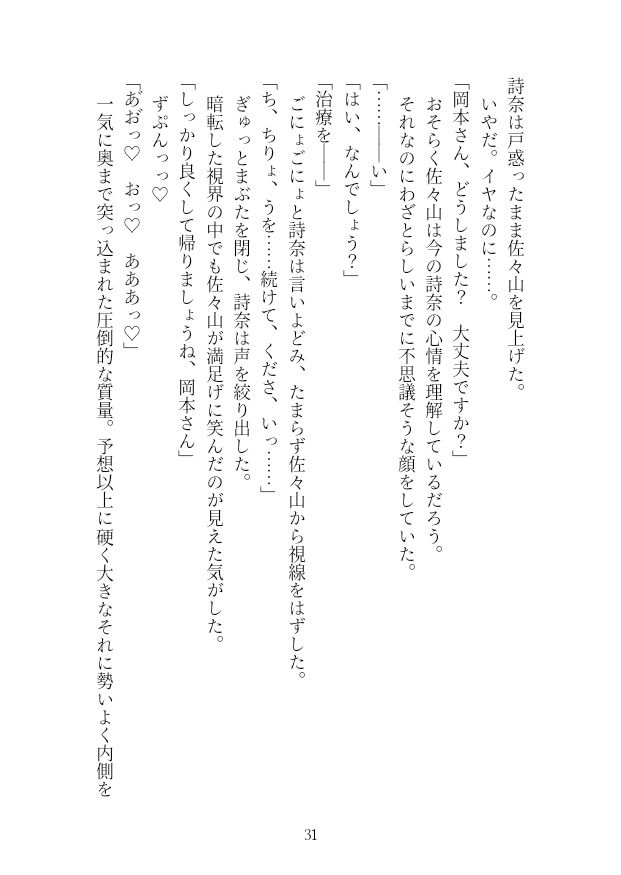 詩奈は戸惑ったまま佐々山を見上げた。
いやだ。イヤなのに……。
「岡本さん、どうしました？　大丈夫ですか？」
おそらく佐々山は今の詩奈の心情を理解しているだろう。
それなのにわざとらしいまでに不思議そうな顔をしていた。
「……――い」
「はい、なんでしょう？」
「治療を――」
ごにょごにょと詩奈は言いよどみ、たまらず佐々山から視線をはずした。
「ち、ちりょ、うを……続けて、くださ、いっ……」
ぎゅっとまぶたを閉じ、詩奈は声を絞り出した。
暗転した視界の中でも佐々山が満足げに笑んだのが見えた気がした。
「しっかり良くして帰りましょうね、岡本さん」
ずぷんっっ♡
「あ゙お゙っ♡　おっ♡　あああっ♡」
一気に奥まで突っ込まれた圧倒的な質量。予想以上に硬く大きなそれに勢いよく内側を
31